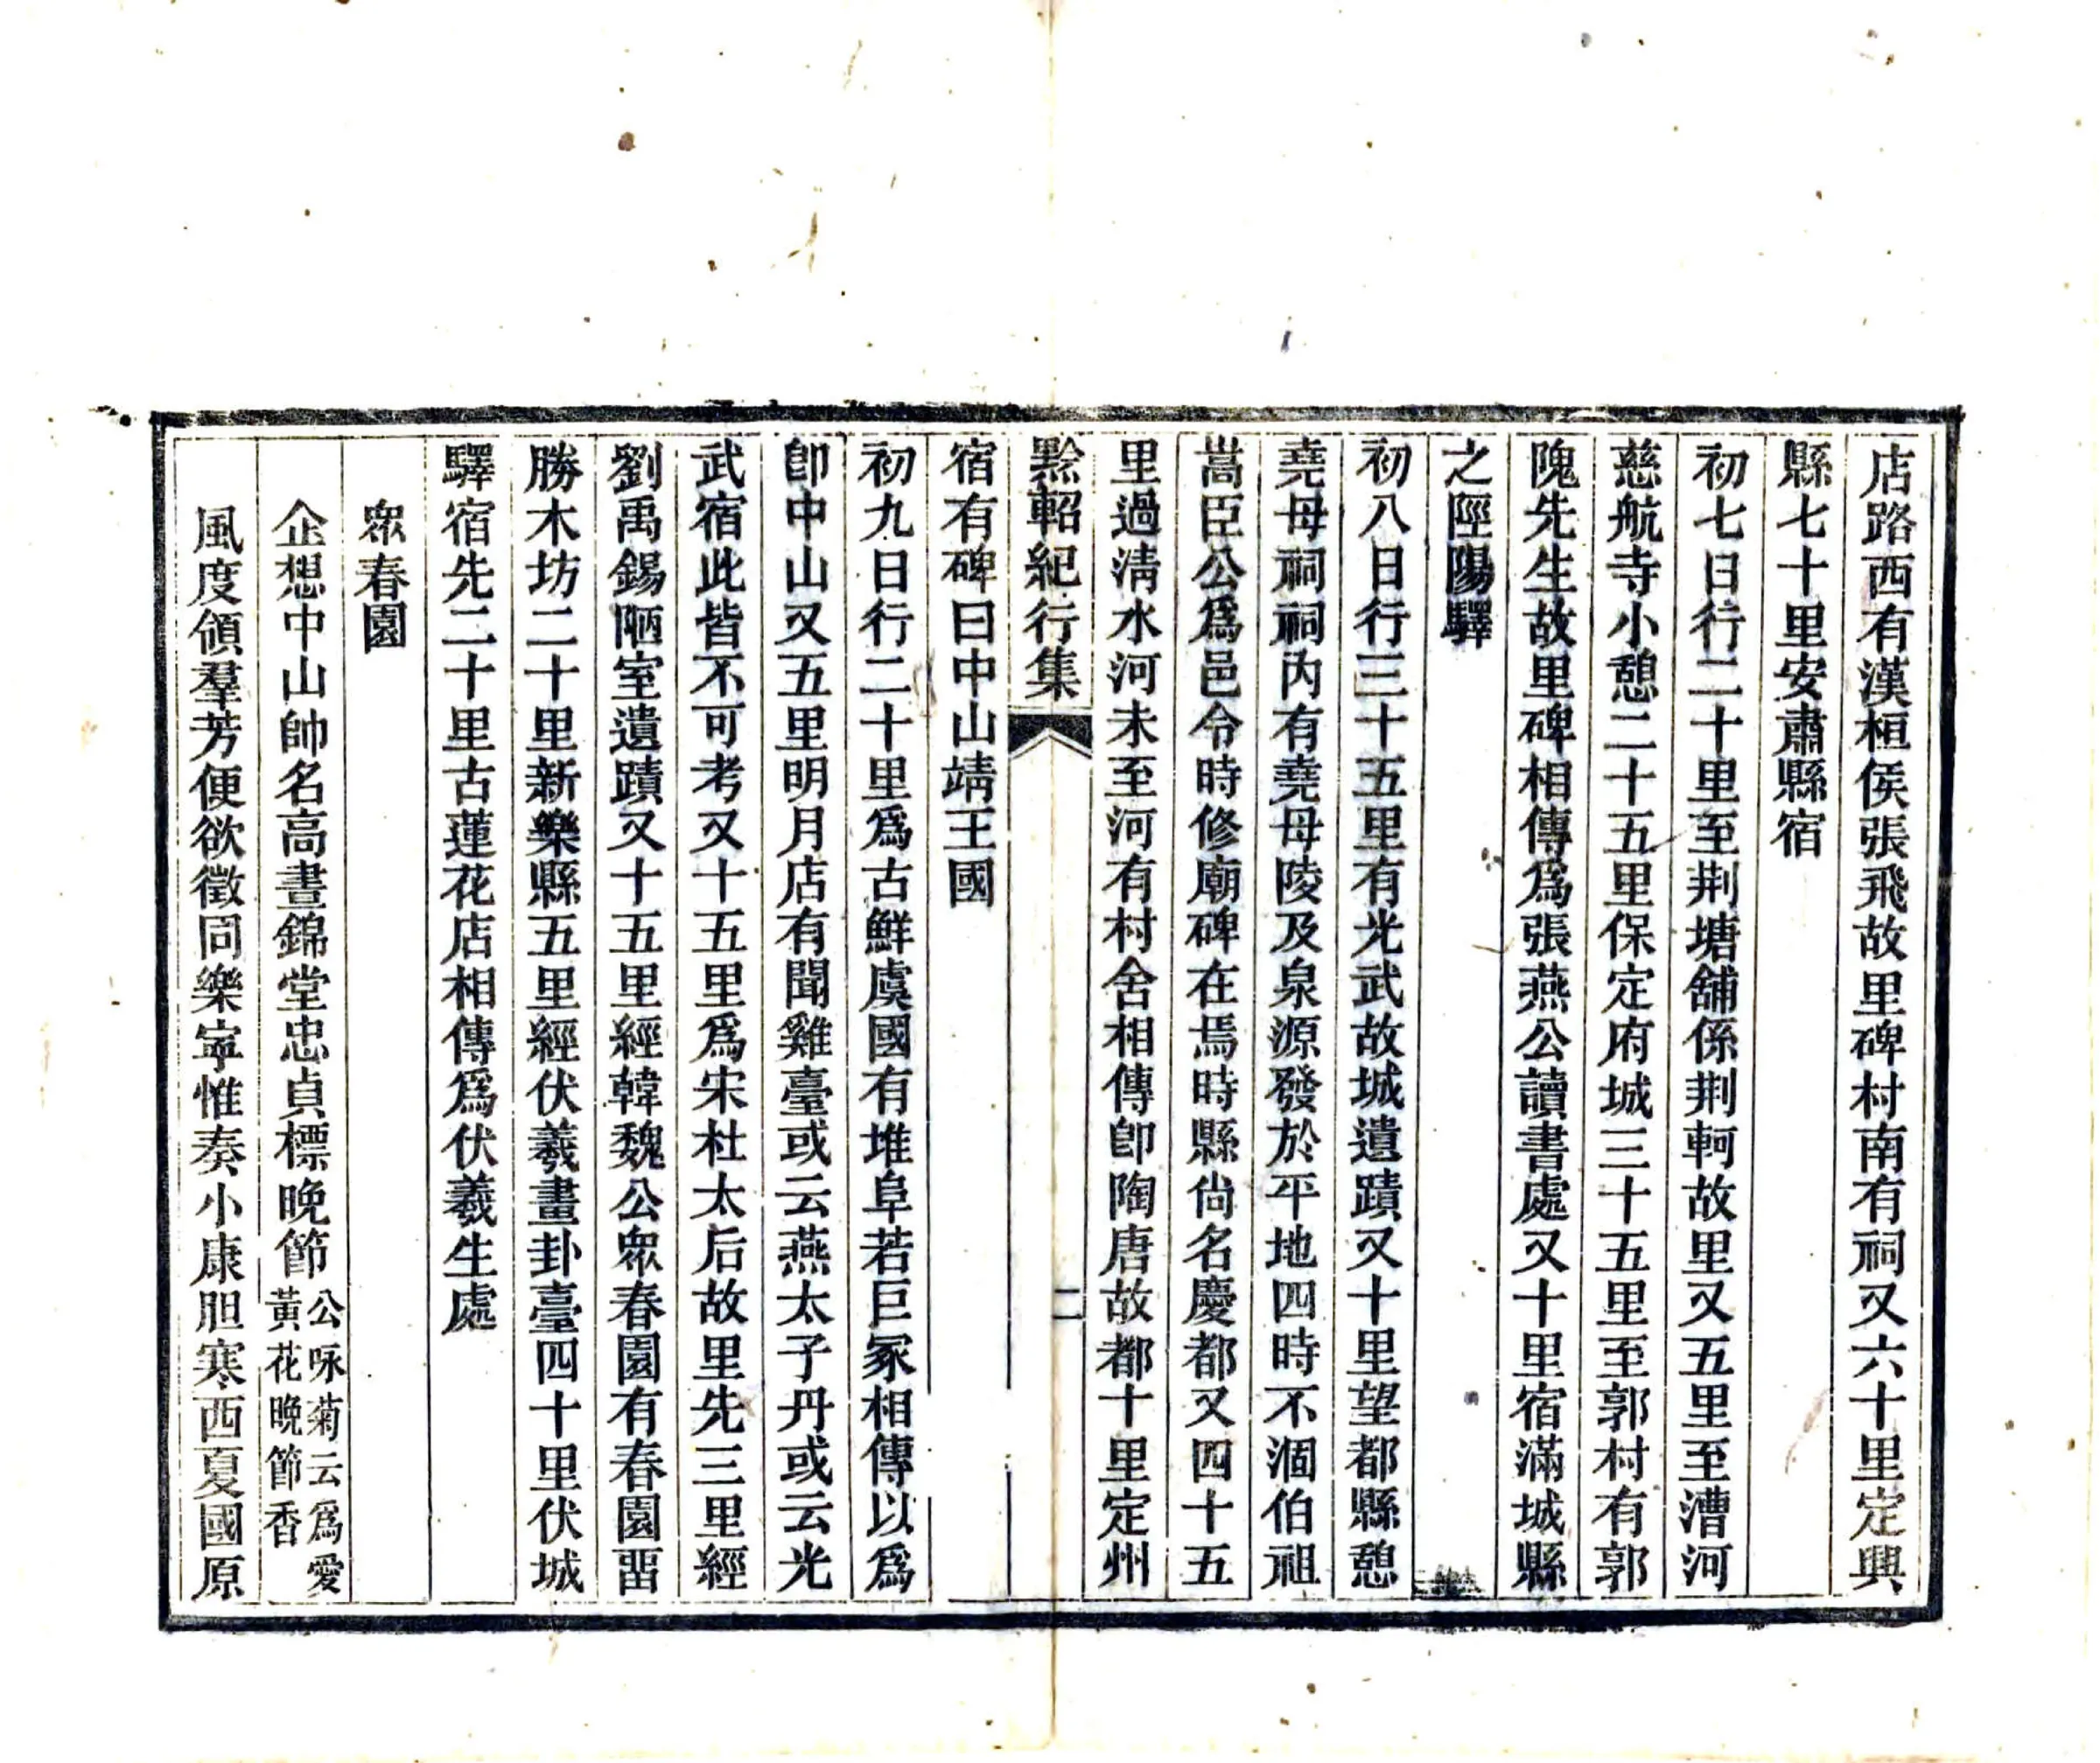 店路西有漢桓侯張飛故里碑村南有祠又六十里定興
縣七十里安肅縣宿
初七日行二十里至荆塘舖係荆軻故里又五里至漕河
慈航寺小憩二十五里保定府城三十五里至郭村有郭
隗先生故里碑相傳爲張燕公讀書處又十里宿滿城縣
之陘陽驛
初八日行三十五里有光武故城遺蹟又十里望都縣憩
堯母祠祠内有堯母陵及泉源發於平地四時不涸伯祖
嵩臣公爲邑令時修廟碑在焉時縣尙名慶都又四十五
里過清水河未至河有村舍相傳卽陶唐故都十里定州
黔軺紀行集
二
宿有碑曰中山靖王國
初九日行二十里爲古鮮虞國有堆阜若巨冢相傳以爲
卽中山又五里明月店有聞雞臺或云燕太子丹或云光
武宿此皆不可考又十五里爲宋杜太后故里先三里經
劉禹錫陋室遺蹟又十五里經韓魏公衆春園有春園畱
勝木坊二十里新樂縣五里經伏羲畫卦臺四十里伏城
驛宿先二十里古蓮花店相傳爲伏羲生處
衆春園
企想中山帥名高晝錦堂忠貞標晚節公咏菊云爲愛黃花晚節香
風度領羣芳便欲徵同樂寧惟奏小康胆寒西夏國原